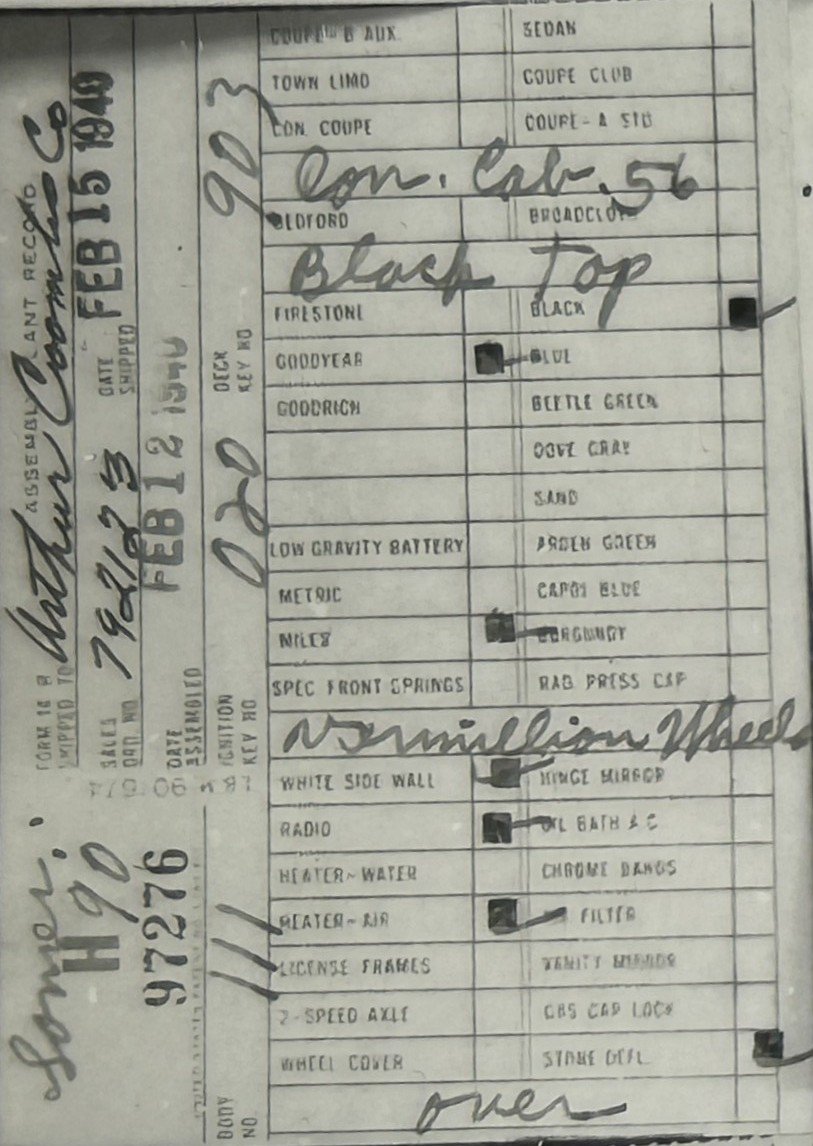 FORM 16 B ASSEMBLY PLANT RECORD
SHIPPED TO Arthur Coombs Co
SALES ORD. NO. 792123 DATE SHIPPED FEB 15 1940
DATE ASSEMBLED FEB 12 1940
IGNITION KEY NO 020 DECK KEY NO 903
H 90
97276
BODY NO 111
COUPE B AUX. SEDAN
TOWN LIMO COUPE CLUB
CON. COUPE COUPE-A STD
Con. Cab. 56
BEDFORD BROADCLOTH
Black Top
FIRESTONE BLACK
GOODYEAR BLUE
GOODRICH BEETLE GREEN
DOVE GRAY
SAND
LOW GRAVITY BATTERY ARDEN GREEN
METRIC CAPRI BLUE
MILES BURGUNDY
SPEC FRONT SPRINGS RAD PRESS CAP
Vermillion Wheels
WHITE SIDE WALL HINGE MIRROR
RADIO OIL BATH A C
HEATER-WATER CHROME BANDS
HEATER-AIR FILTER
LICENSE FRAMES VANITY MIRROR
2-SPEED AXLE GAS CAP LOCK
WHEEL COVER STONE DEFL
over